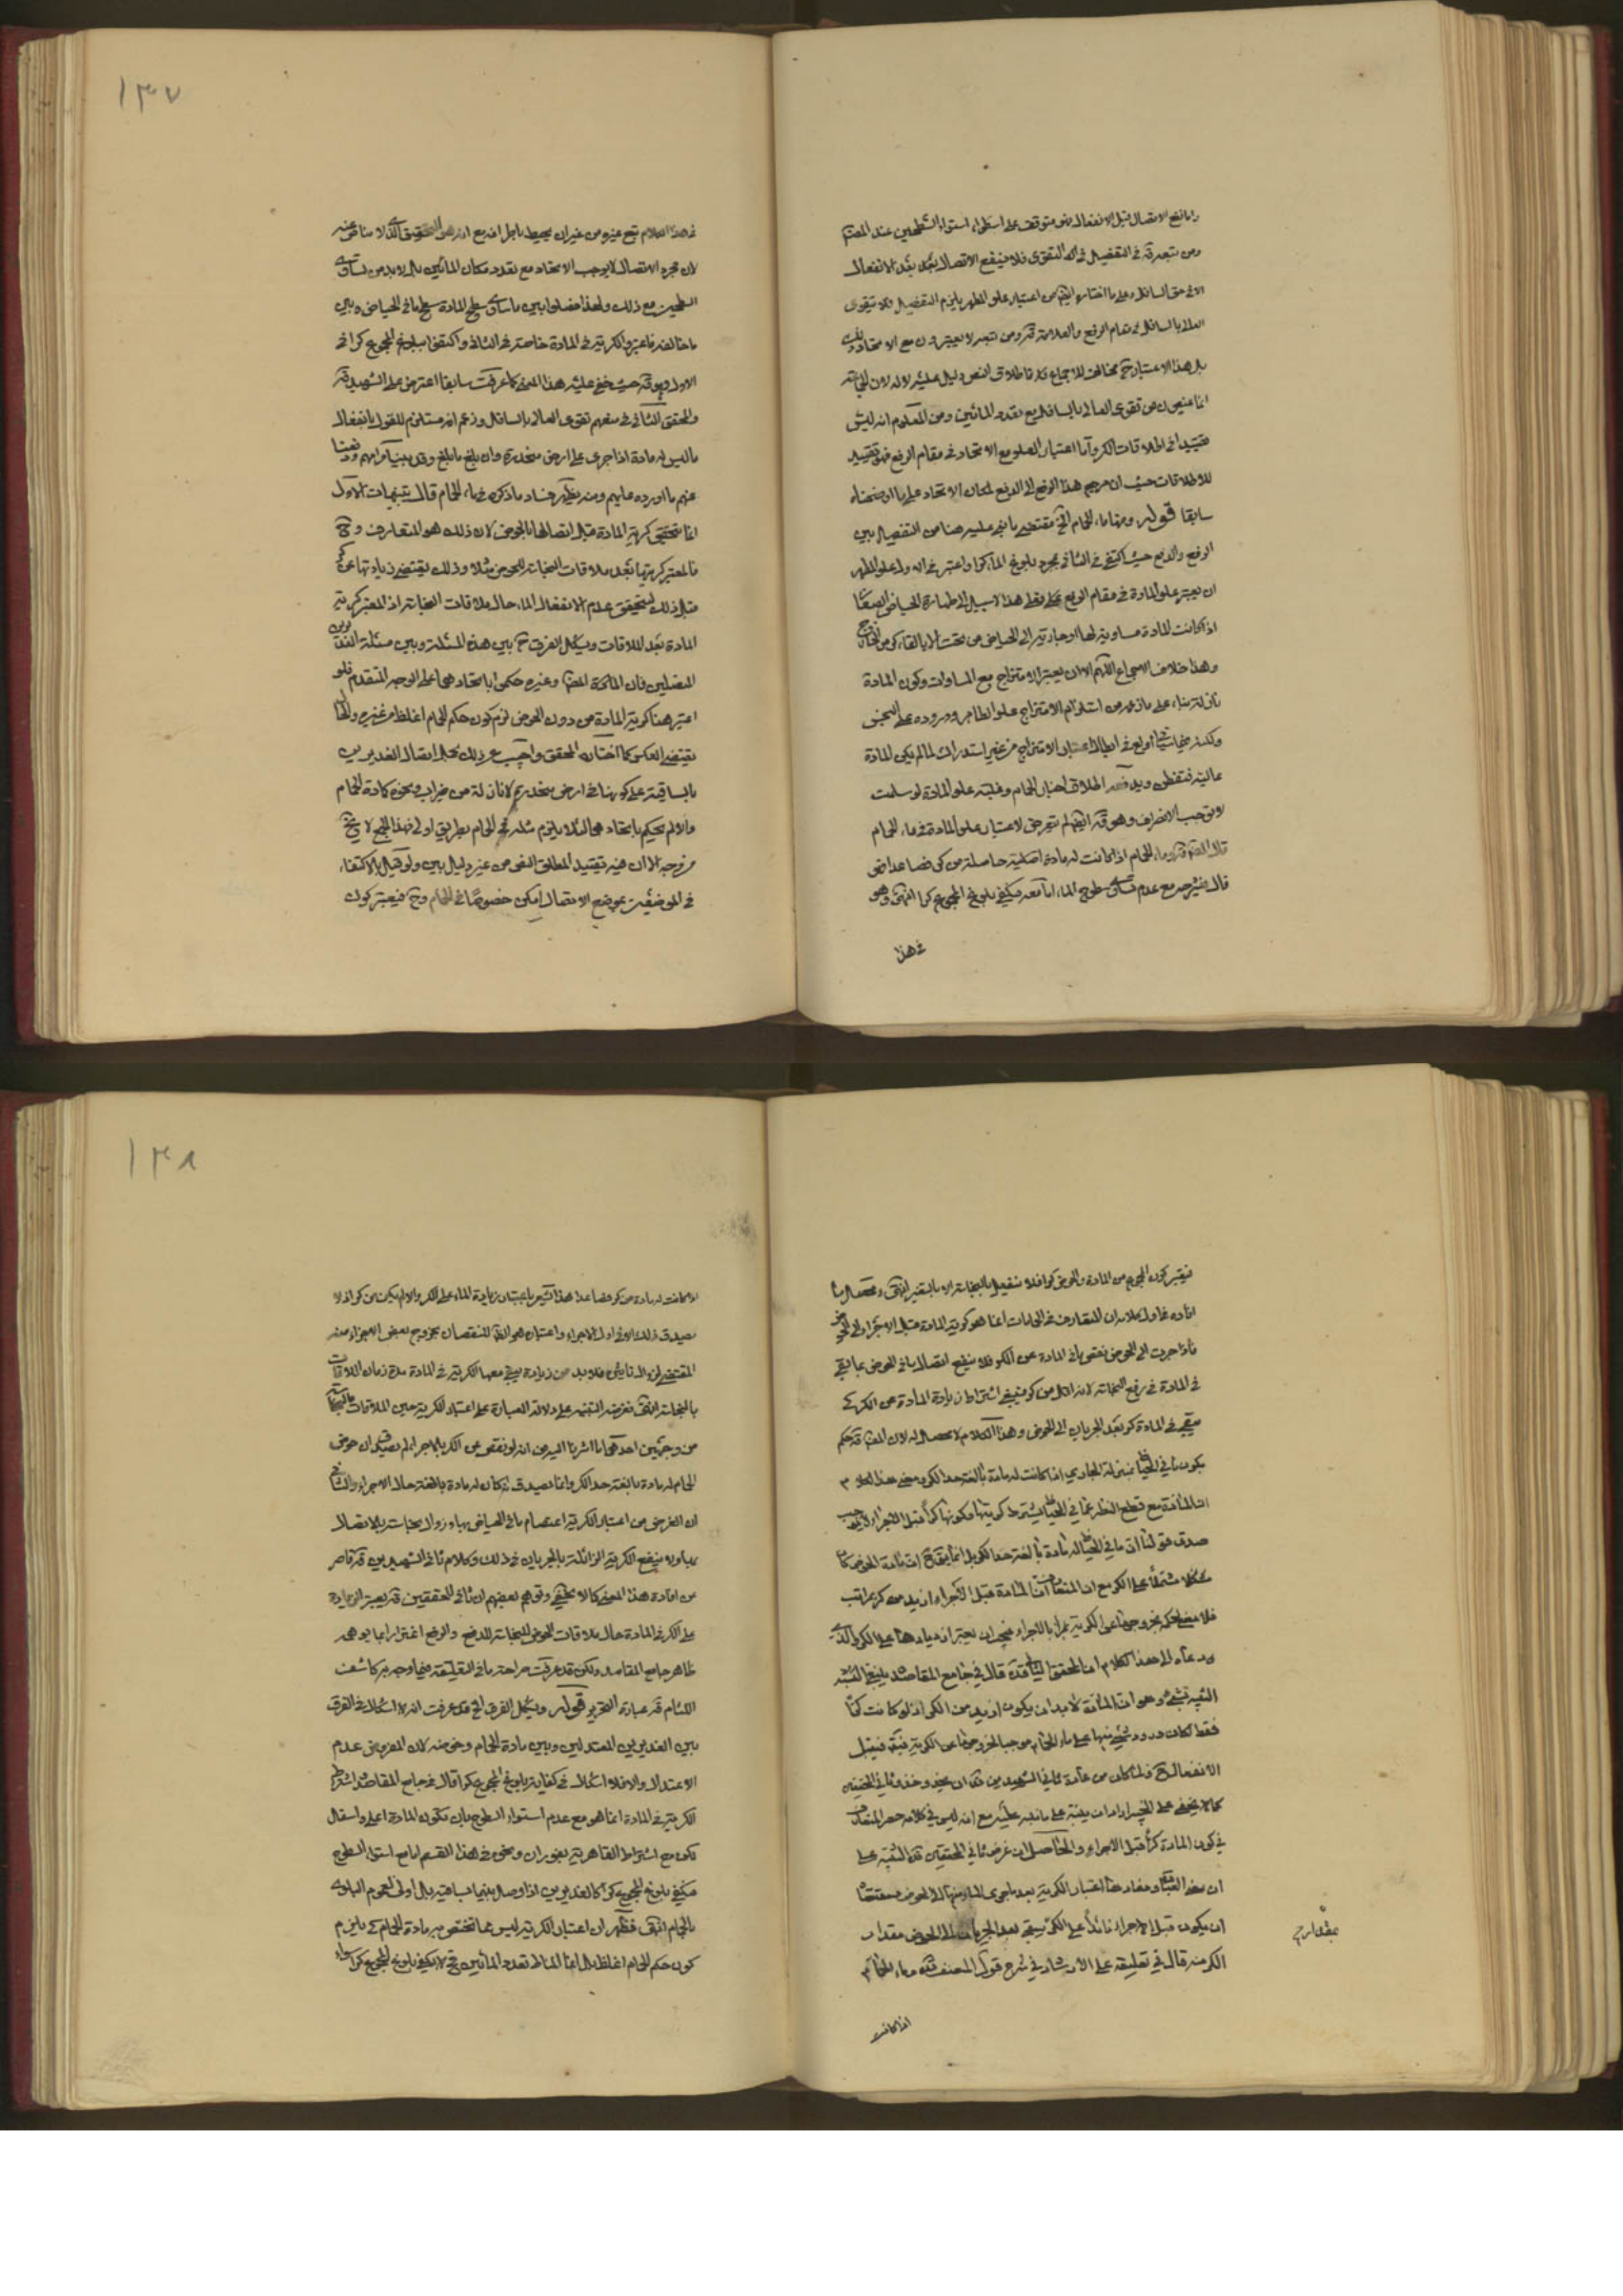 واما نفع الاتصال قبل الانفعال فهو متوقف على استواء السطحين عند المصنف
ومن تبعه قده في التفصيل في التقوى فلا ينفع الاتصال بعد الانفعال
الا في حق السافل وعلى ما اختاره من اعتبار علو المطهر يلزم التفصيل فلا يتقوى
العالي بالسافل في مقام الرفع والعلامة قده ومن تبعه لا يعتبرون مع الاتحاد ذلك
بل هذا الاعتبار ح مخالف للاجماع فلا اطلاق النص دليل عليه
انما منعوا من تقوى العالي بالسافل مع تعدد المائين ومن المعلوم انه ليس
تقييدا في اطلاقات الكر واما اعتبار العلو مع الاتحاد في مقام الرفع فهو تقييد
للاطلاقات حيث ان مرجع هذا الرفع الى الدفع لمكان الاتحاد على ما اوضحناه
سابقا قوله وماء الحمام الخ مقتضى ما بنى عليه هنا من التفصيل بين
الرفع والدفع حيث اكتفى في الثاني بمجرد بلوغ الماء كرا واعتبر في الاول علو المطهر
ان يعتبر علو المادة في مقام الرفع فعلى هذا لا سبيل الى طهارة الحياض الصغار
اذا كانت المادة مساوية لها او جارية الى الحياض من تحت الا بالقاء كر من الخارج
وهذا خلاف الاجماع اللهم الا ان يعتبر الامتزاج مع المساوات وكون المادة
نازلة بناء على ما زعمه من استلزام الامتزاج علو الطاهر ووروده على النجس
ولكنه فيما سيأتي اولع في ابطال اعتبار الامتزاج من غير استدراك لما لم يكن المادة
عالية فتفطن ويدفعه اطلاق اخبار الحمام وغلبة علو المادة لو سلمت
لا توجب الانصراف وهو قده ايضا لم يتعرض لاعتبار علو المادة في ماء الحمام
قال المصنف قده وماء الحمام اذا كانت له مادة اصلية حاصلة من كر فصاعدا ثم
قال في شرحه مع عدم تساوي سطوح الماء اما معه فيكفي بلوغ المجموع كرا انتهى وهو
في هذا
١٣٧
في هذا الكلام تبع غيره من غير ان يحيط باطرافه مع انه هو التحقيق الذي لا مناص عنه
لان مجرد الاتصال لا يوجب الاتحاد مع تعدد مكان المائين بل لا بد من تساوي
السطحين مع ذلك ولهذا فصلوا بين ما ساوى سطح المادة سطح ما في الحياض وبين
ما خالفه فاعتبروا الكرية في المادة خاصة في الثاني واكتفوا ببلوغ المجموع كرا في
الاول وهو قده حيث خفي عليه هذا المعنى كما عرفت سابقا اعترض على الشهيد قده
والمحقق الثاني في منعهم تقوى العالي بالسافل وزعم انه مستلزم للقول بانفعال
ما ليس له مادة اذا جرى على ارض منحدرة وان بلغ ما بلغ وقد بينا مرامهم ودفعنا
عنهم ما اورده عليهم ومنه يظهر فساد ما ذكره في ماء الحمام قال تنبيهات الاول
انما تتحقق كرية المادة قبل اتصالها بالحوض لان ذلك هو المتعارف وح
فالمعتبر كريتها بعد ملاقات النجاسة للحوض مثلا وذلك يقتضي زيادتها عن كر
قبل ذلك ليتحقق عدم الانفعال الماء حال ملاقات النجاسة اذ المعتبر كرية
المادة بعد الملاقات ويشكل الفرق ح بين هذه المسئلة وبين مسئلة الغديرين
المتصلين فان المحقق المصنف وغيره حكموا باتحادهما على الوجه المتقدم فلو
اعتبر هنا كرية المادة من دون الحوض لزم كون حكم الحمام اغلظ من غيره والحال
يقتضي العكس كما اختاره المحقق واجيب عن ذلك بحمل اتصال الغديرين
بالساقية على كونها في ارض منحدرة لا نازلة من ميزاب ونحوه كمادة الحمام
والا لم يحكم باتحادهما لئلا يلزم مثله في الحمام بطريق اولى فهذا الجمع لا يخ
من وجه الا ان فيه تقييد المطلق النص من غير دليل بين ولو قيل بالاكتفاء
في الموضعين بموضع الاتصال امكن خصوصا في الحمام وح فيعتبر كون
فيعتبر كون المجموع من المادة والحوض كرا فلا ينفعل بالنجاسة الا بالتغير انتهى ومحصل ما
افاده في اول كلامه ان المتعارف في الحمامات انما هو كرية المادة قبل الاجراء الى الحوض
فاذا جرت الى الحوض نقص ما في المادة عن الكر فلا ينفع اتصال ما في الحوض بما بقي
في المادة في رفع النجاسة لانه اقل من كر فينبغي اشتراط زيادة المادة عن الكر كي
يبقى في المادة كر بعد الجريان الى الحوض وهذا الكلام لا محصل له لان المصنف قده حكم
بكون ما في الحياض بمنزلة الجاري اذا كانت له مادة بالغة حد الكر ومعنى هذا الكلام
ان المادة مع قطع النظر عما في الحياض يشترط كريتها وكونها كرا قبل الاجراء لا يوجب
صدق قولنا ان ما في الحياض له مادة بالغة حد الكر بل انما يقال ح ان مادة الحوض كان
مشتملا على الكر مع ان المتعارف ان المادة قبل الاجراء ازيد من كر بمراتب
فلا معنى لحكمه بخروجها عن الكرية بمجرد الاجراء فيجب ان يعتبر ازديادها على الكر والذي
دعاه الى هذا الكلام ان المحقق الثاني قده قال في جامع المقاصد وينبغي التنبه
الثاني لشيء وهو ان المادة لا بد ان يكون ازيد من الكر اذ لو كانت كرا
فقط لكان ورود شيء منها على ماء الحمام موجبا لخروجها عن الكرية فيقبل
الانفعال ح فلما كان من عادة ثاني الشهيدين قده ان يحذو حذو ثاني المحققين
كما لا يخفى على الخبير اراد ان ينبه على ما نبه عليه مع انه ليس في كلامه حصر المتعارف
في كون المادة كرا قبل الاجراء والحاصل ان غرض ثاني المحققين قده التنبيه على
ان معنى العبارة ومفادها اعتبار الكرية بعد ما جرى الماء منها الى الحوض فمقتضاها
ان يكون قبل الاجراء زائدا على الكر ليبقى بعد الجريان الى الحوض مقدار
بمقدار ح
الكر منه قال في تعليقه على الارشاد في شرح قول المصنف قده وماء الحمام
اذا كانت
١٣٨
اذا كانت له مادة من كر فصاعدا هذا انما يعتبر باعتبار زيادة الماء على الكر والا لم يكن من كر اذ لا
يصدق ذلك الا في اول الاجراء واعتباره هو الآخر للنقصان بخروج بعض الاجزاء منه
المقتضي لزوال تاثيره فلا بد من زيادة يبقى معها الكرية في المادة مدة زمان الملاقات
بالنجاسة انتهى فغرضه التنبيه على دلالة العبارة على اعتبار الكرية حين الملاقات بالنجاسة
من وجهين احدهما ما اشرنا اليه من انه لو نقص عن الكر بالاجراء لم يصدق ان حوض
الحمام له مادة بالغة حد الكر وانما يصدق انه كان له مادة بالغة حال الاجراء والثاني
ان الغرض من اعتبار الكرية اعتصام ما في الحياض بها وزوال نجاسته بالاتصال
بها ولا ينفع الكرية الزائلة بالجريان في ذلك وكلام ثاني الشهيدين قده قاصر
عن افادة هذا المعنى كما لا يخفى وتوهم بعضهم ان ثاني المحققين قده يعتبر الزيادة
على الكر في المادة حال ملاقات الحوض للنجاسة للدفع والرفع اغترارا بما يوهمه
ظاهر جامع المقاصد ولكن قد عرفت صراحة ما في التعليقة فيما وجهه كاشف
اللثام قده عبارة التحرير قوله ويشكل الفرق الخ قد عرفت انه لا اشكال في الفرق
بين الغديرين المعتدلين وبين مادة الحمام وحوضه لان المفروض عدم
الاعتدال والا فلا اشكال في كفاية بلوغ المجموع كرا قال في جامع المقاصد اشتراط
الكرية في المادة انما هو مع عدم استواء السطوح بان تكون المادة اعلى واسفل
لكن مع اشتراط القاهرية بفوران ونحوه في هذا القسم اما مع استواء السطوح
فيكفي بلوغ المجموع كرا كالغديرين اذا وصل بينهما بساقية بل اولى لعموم البلوى
بالحمام انتهى فظهر ان اعتبار الكرية ليس مما تختص به مادة الحمام كي يلزم
كون حكم الحمام اغلظ بل انما المناط تعدد المائين فح لا يكفي بلوغ المجموع كرا سواء